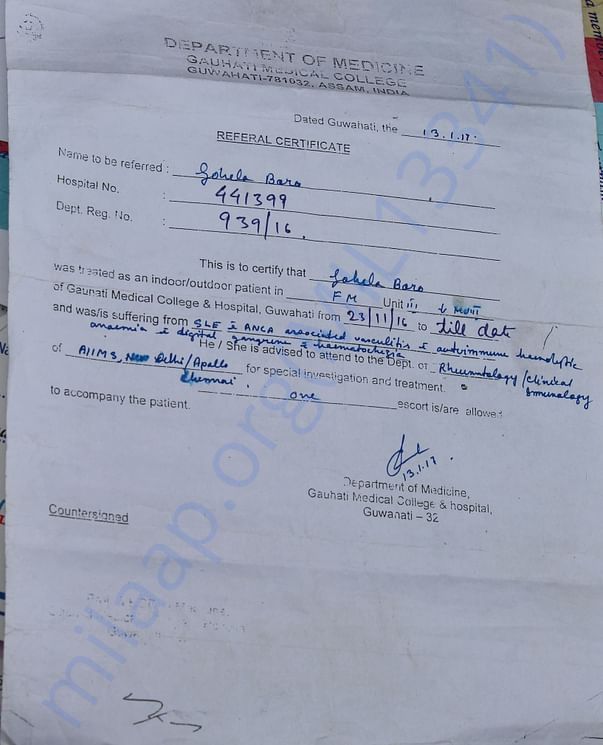 DEPARTMENT OF MEDICINE
GAUHATI MEDICAL COLLEGE
GUWAHATI-781032, ASSAM, INDIA
Dated Guwahati, the 13.1.17.
REFERAL CERTIFICATE
Name to be referred : Gohela Baro
Hospital No. : 441399
Dept. Reg. No. : 939/16.
This is to certify that Gohela Baro
was treated as an indoor/outdoor patient in FM Unit III
of Gauhati Medical College & Hospital, Guwahati from 23/11/16 to till date
and was/is suffering from SLE c ANCA associated vasculitis c autoimmune haemolytic
anaemia c digital gangrene c haematochezia
He / She is advised to attend to the Dept. of Rheumatology/clinical
Immunology
of AIIMS, New Delhi/Apollo for special investigation and treatment.
Chennai. one escort is/are allowed
to accompany the patient.
13.1.17.
Department of Medicine,
Gauhati Medical College & hospital,
Guwahati – 32
Countersigned
milaap.org